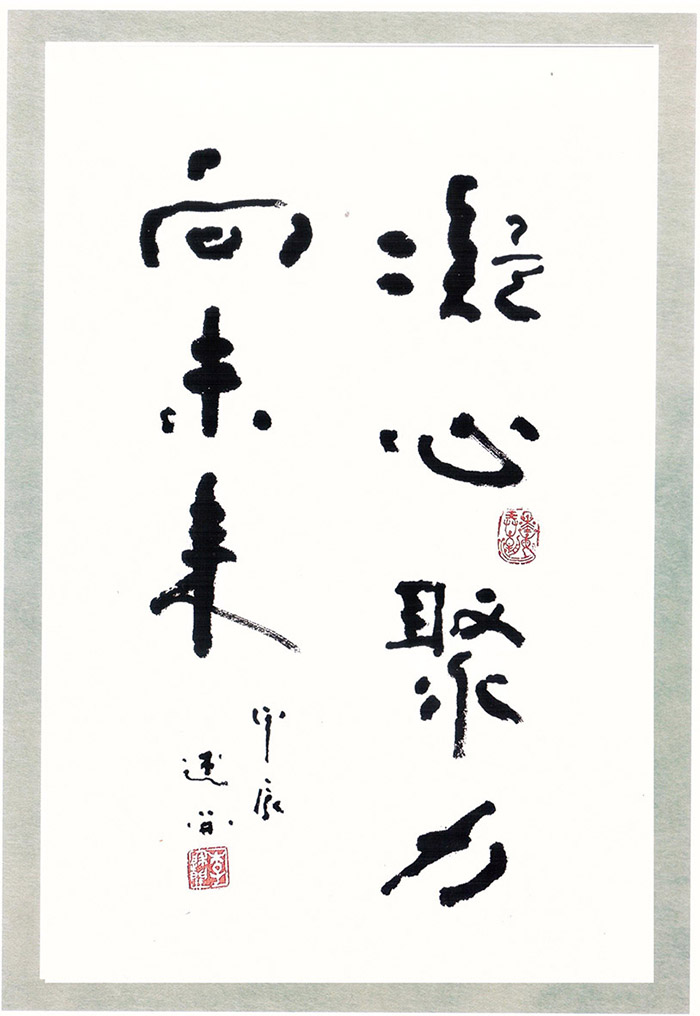 凝心聚力
向未来
甲辰